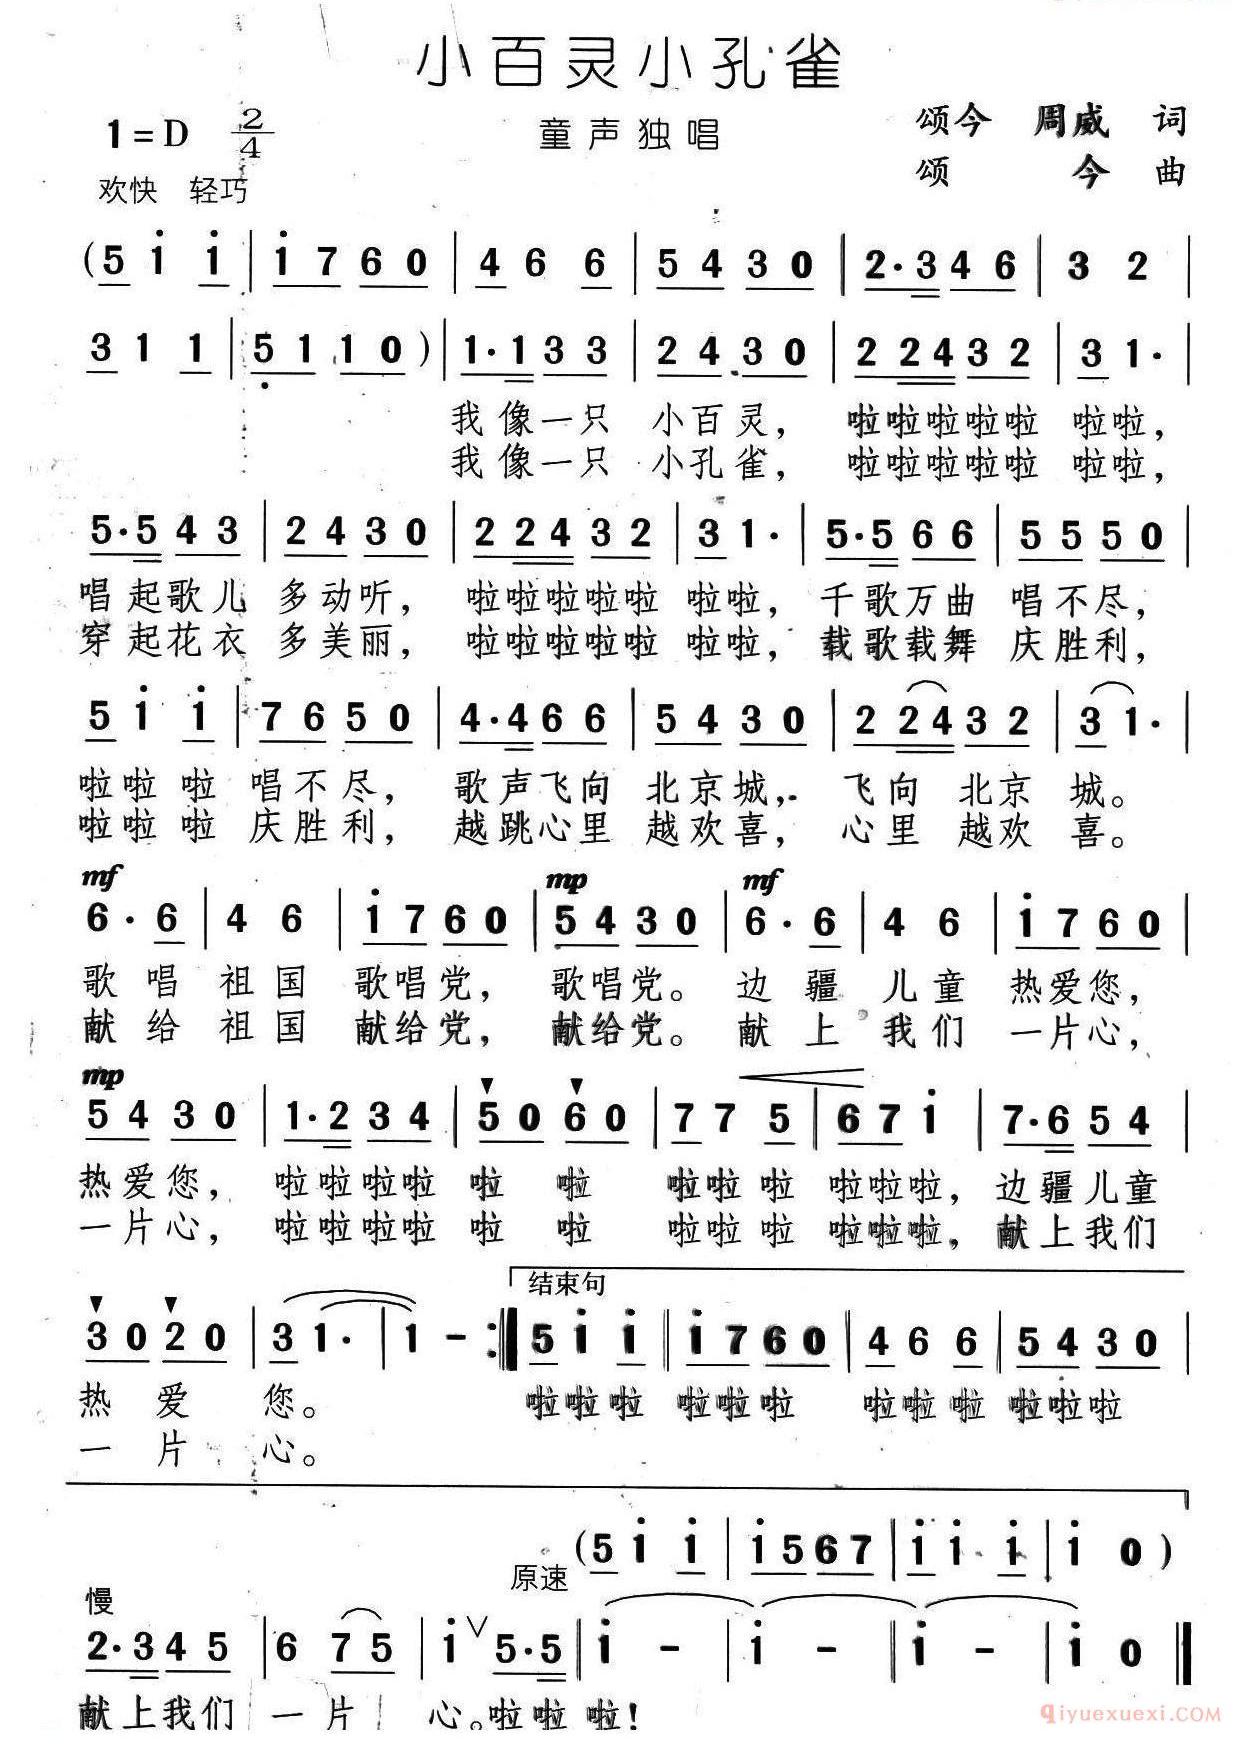 小百灵小孔雀
1=D 2/4 童声独唱 颂今 周威 词
欢快 轻巧 颂 今 曲
(5 i i | i 7 6 0 | 4 6 6 | 5 4 3 0 | 2·3 4 6 | 3 2 |
3 1 1 | 5 1 1 0) | 1·1 3 3 | 2 4 3 0 | 2 2 4 3 2 | 3 1· |
我像一只 小百灵, 啦啦啦啦啦 啦啦,
我像一只 小孔雀, 啦啦啦啦啦 啦啦,
5·5 4 3 | 2 4 3 0 | 2 2 4 3 2 | 3 1· | 5·5 6 6 | 5 5 5 0 |
唱起歌儿 多动听, 啦啦啦啦啦 啦啦, 千歌万曲 唱不尽,
穿起花衣 多美丽, 啦啦啦啦啦 啦啦, 载歌载舞 庆胜利,
5 i i | 7 6 5 0 | 4·4 6 6 | 5 4 3 0 | 2 2 4 3 2 | 3 1· |
啦啦 啦 唱不尽, 歌声飞向 北京城, 飞向 北京 城。
啦啦 啦 庆胜利, 越跳心里 越欢喜, 心里 越欢 喜。
mf mp mf
6·6 | 4 6 | i 7 6 0 | 5 4 3 0 | 6·6 | 4 6 | i 7 6 0 |
歌 唱 祖 国 歌唱党, 歌唱党。 边 疆 儿 童 热爱您,
献 给 祖 国 献给党, 献给党。 献 上 我 们 一片心,
mp
5 4 3 0 | 1·2 3 4 | 5 0 6 0 | 7 7 5 | 6 7 i | 7·6 5 4 |
热爱您, 啦啦啦啦 啦 啦 啦啦 啦 啦啦啦, 边疆儿童
一片心, 啦啦啦啦 啦 啦 啦啦 啦 啦啦啦, 献上我们
结束句
3 0 2 0 | 3 1· | 1 - :‖ 5 i i ‖ i 7 6 0 | 4 6 6 | 5 4 3 0 |
热 爱 您。 啦啦啦 啦啦啦 啦啦 啦 啦啦啦
一 片 心。
原速 (5 i i | i 5 6 7 | i i i | i 0)
慢
2·3 4 5 | 6 7 5 | i ∨ 5·5 | i - | i - | i - | i 0 ‖
献上我们 一 片 心。啦啦 啦!
qiyuexuexi.COM